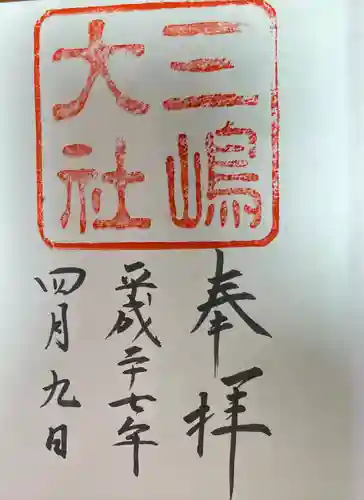 三嶋
大社
奉拝
平成二十七年
四月九日